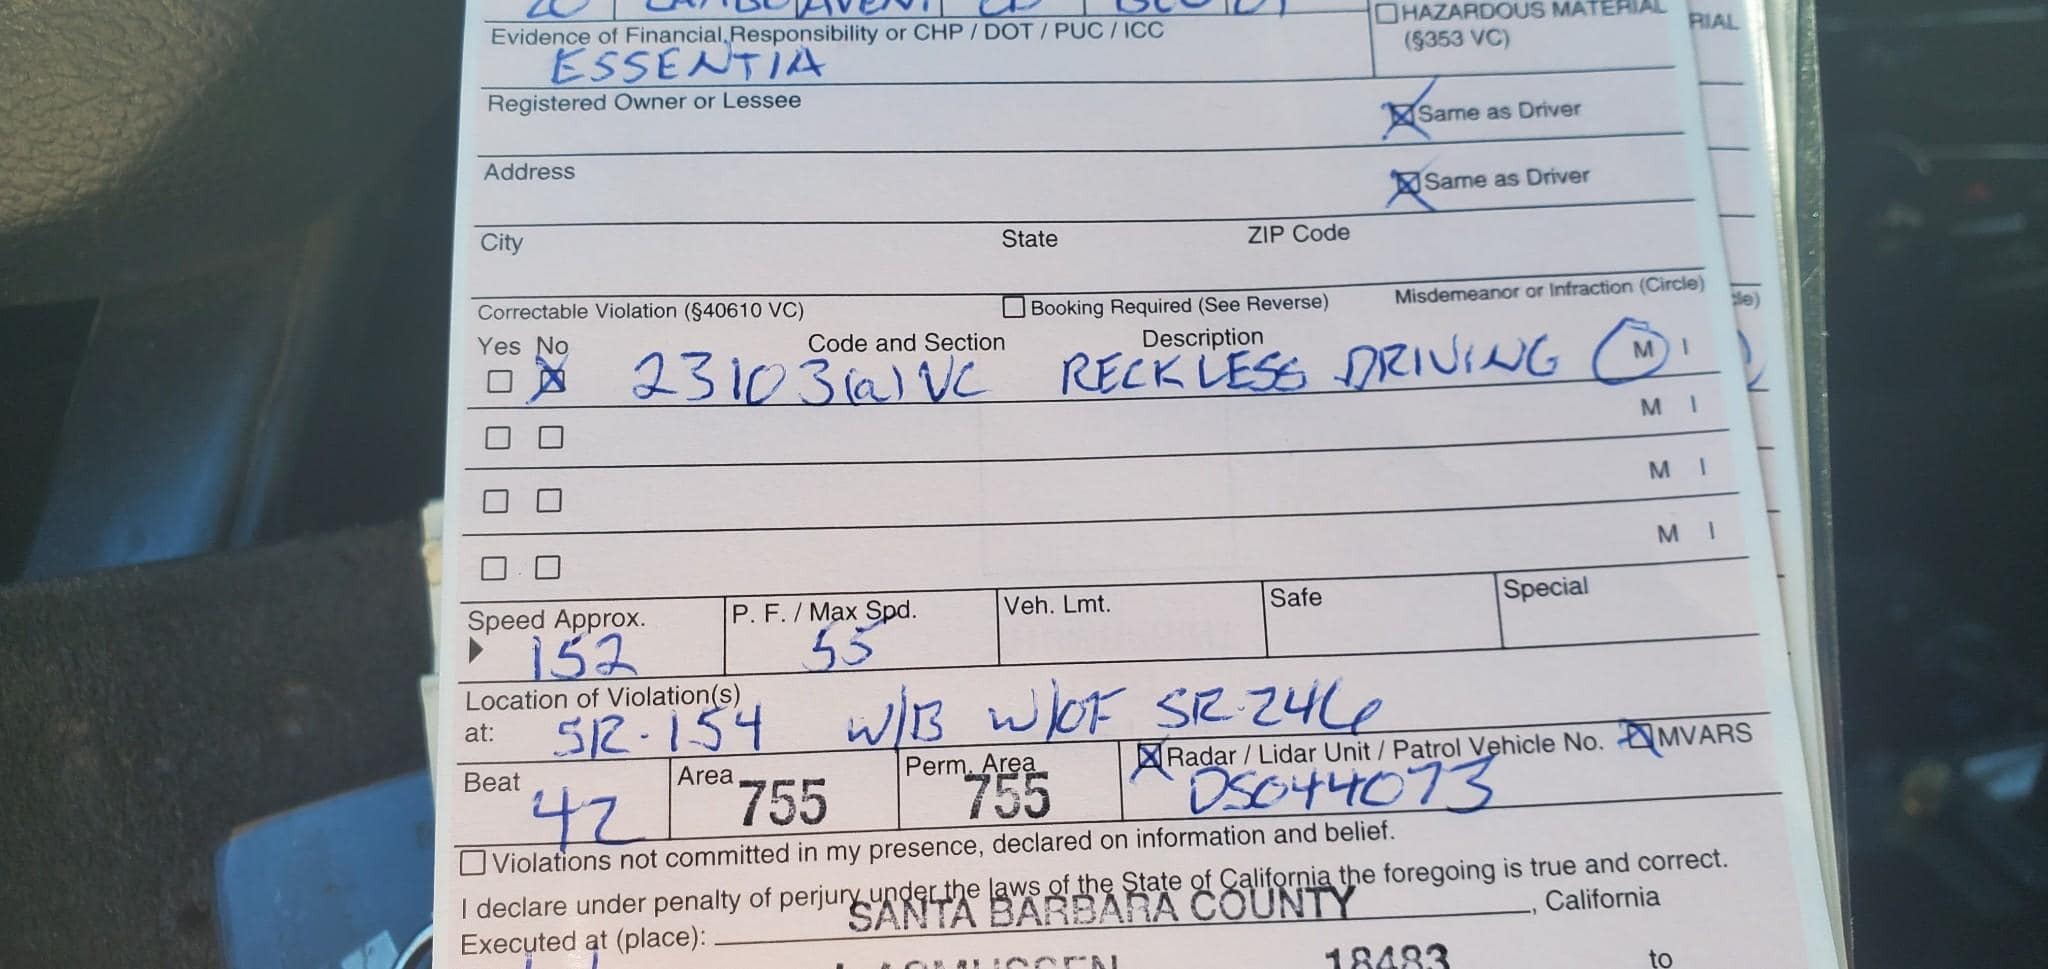 20 LAMBO/AVENT CP
HAZARDOUS MATERIAL
RIAL
Evidence of Financial Responsibility or CHP / DOT / PUC / ICC
(§353 VC)
ESSENTIA
Registered Owner or Lessee
Same as Driver
Address
Same as Driver
City State ZIP Code
Correctable Violation (§40610 VC) Booking Required (See Reverse) Misdemeanor or Infraction (Circle)
cle)
Yes No Code and Section Description
23103(a) VC RECKLESS DRIVING M I
M I
M I
M I
Speed Approx. P. F. / Max Spd. Veh. Lmt. Safe Special
152 55
Location of Violation(s)
at: SR-154 W/B W/OF SR-246
Beat Area Perm. Area Radar / Lidar Unit / Patrol Vehicle No. MVARS
42 755 755 DS044073
Violations not committed in my presence, declared on information and belief.
I declare under penalty of perjury under the laws of the State of California the foregoing is true and correct.
SANTA BARBARA COUNTY
Executed at (place): , California
18483 to